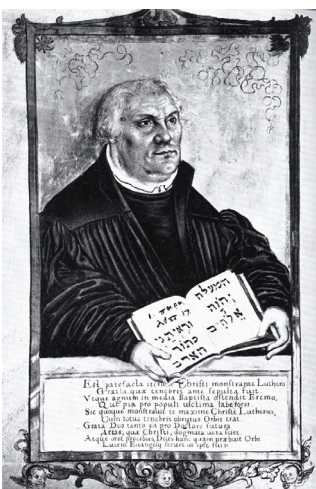 המעלה
Est patefacta iterum Christi monstrante Luthero
Gratia quæ tenebris ante sepulta fuit.
Vtque agnum in media Baptista ostendit Eremo,
Qui pia pro populi victima labe foret
Sic quoque monstrauit te maxime Christe Lutherus,
Cum totus tenebris obrutus Orbis erat.
Grata Deo tanto sis pro Doctore futura
Aetas, quæ Christi, dogmata vera
Atque oret precibus, Deus hanc quam præbuit Orbi
Lucem Euangelij seruet vt ipse suis